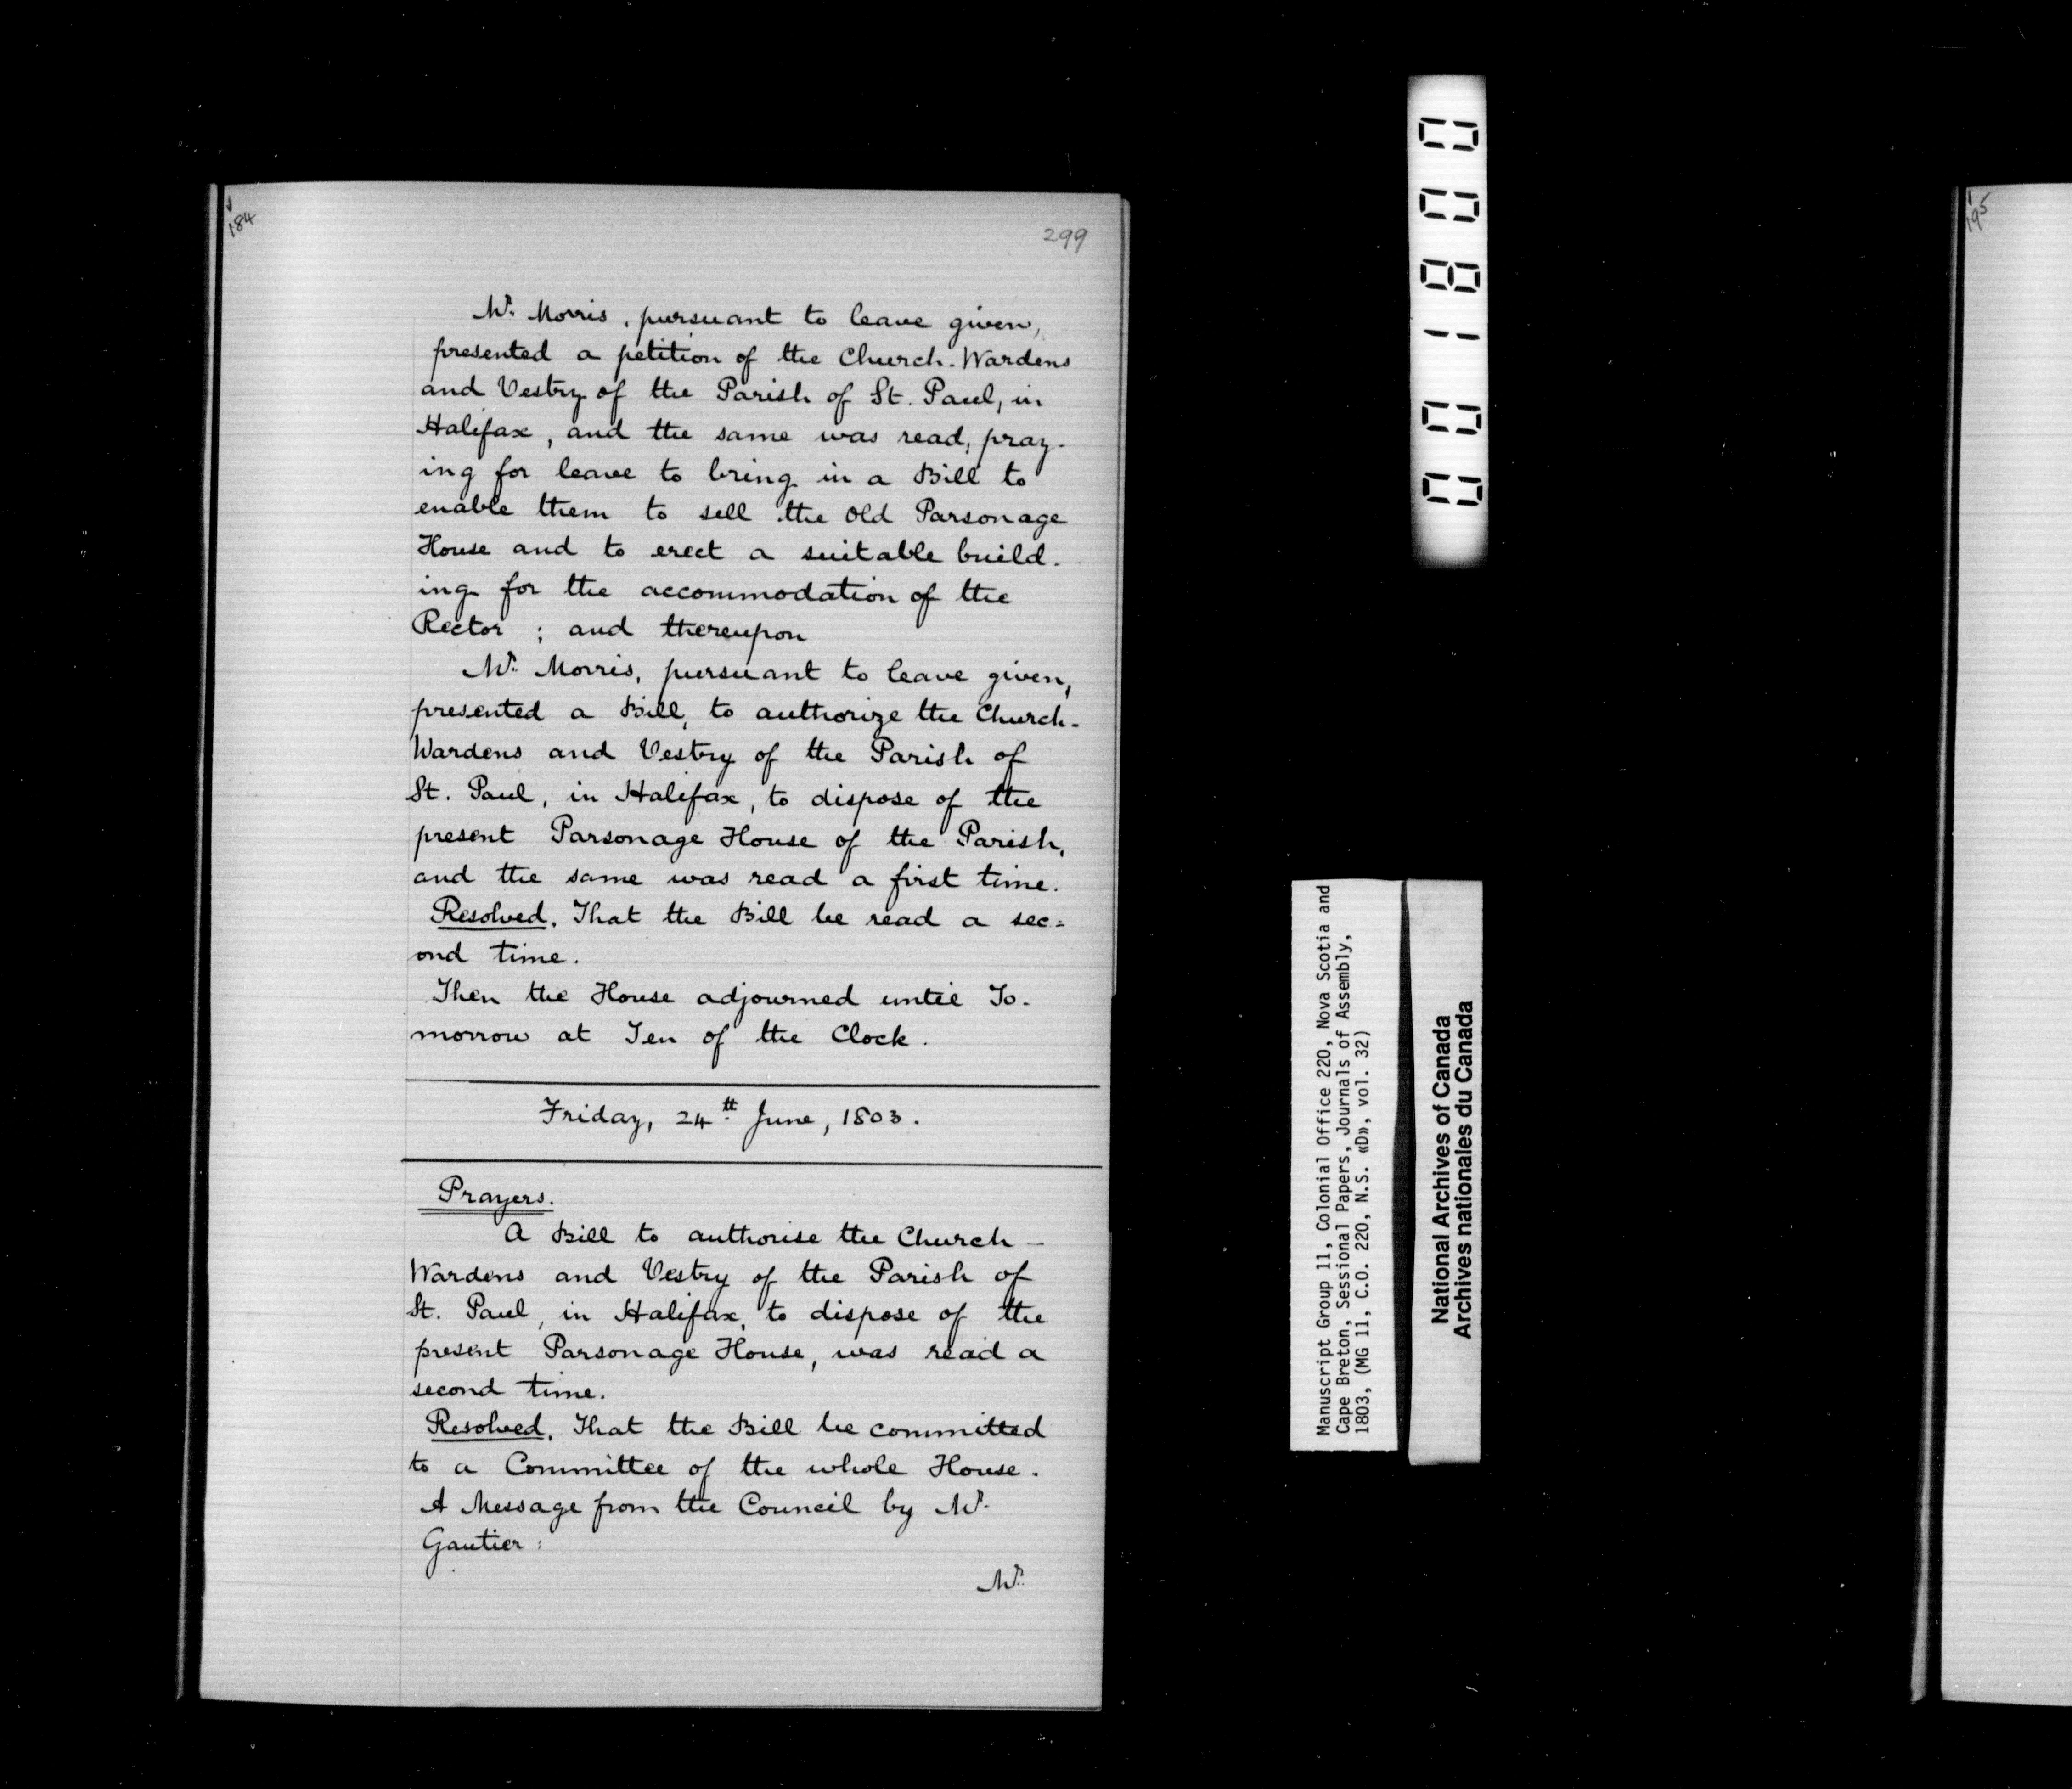 184
299
Mr. Morris, pursuant to leave given,
presented a petition of the Church-Wardens
and Vestry of the Parish of St. Paul, in
Halifax, and the same was read, pray-
ing for leave to bring in a Bill to
enable them to sell the old Parsonage
House and to erect a suitable build-
ing for the accommodation of the
Rector ; and thereupon
Mr. Morris, pursuant to leave given,
presented a Bill, to authorize the Church-
Wardens and Vestry of the Parish of
St. Paul, in Halifax, to dispose of the
present Parsonage House of the Parish,
and the same was read a first time.
Resolved, That the Bill be read a sec=
ond time.
Then the House adjourned until To-
morrow at Ten of the Clock.
Friday, 24th June, 1803.
Prayers.
A Bill to authorise the Church-
Wardens and Vestry of the Parish of
St. Paul, in Halifax, to dispose of the
present Parsonage House, was read a
second time.
Resolved, That the Bill be committed
to a Committee of the whole House.
A Message from the Council by Mr.
Gautier:
Mr.
001800
Manuscript Group 11, Colonial Office 220, Nova Scotia and
Cape Breton, Sessional Papers, Journals of Assembly,
1803, (MG 11, C.O. 220, N.S. «D», vol. 32)
National Archives of Canada
Archives nationales du Canada
195